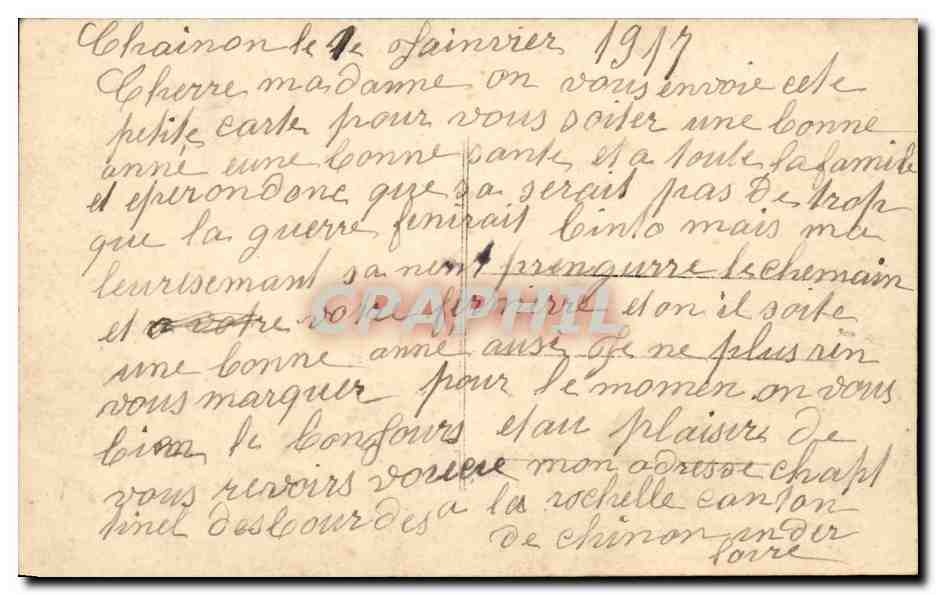 Chainon le 1e Jainvier 1917
Cherre madanne on vous envoie cete
petite carte pour vous soiter une bonne
anné eune bonne sante et a toute la famile
et eperondonc que sa serait pas de trop
que la guerre finirait binto mais ma
leurisemant sa nent prengurre le chemain
et votre et on il soite
une bonne anne ausi Je ne plus rien
vous marquer pour le momen on vous
le bonjours et au plaisire de
vous revoirs mon adresse chapt
tinel des bourdes a la rochelle canton
de chinon inder
loire
CPAPHIL